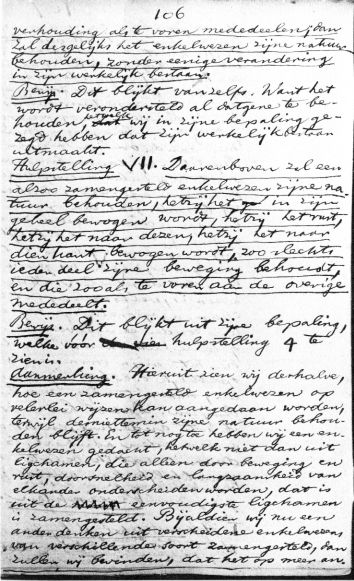 106
verhouding als te voren mededeelen, dan
zal dezgelijks het enkelwezen zijne natuur
behouden, zonder eenige verandering
in zijn werkelijk bestaan.
Bewijs. Dit blijkt van zelfs. Want het
wordt verondersteld al datgene te be-
houden, wij in zijne bepaling ge-
zegd hebben dat zijn werkelijk bestaan
uitmaakt.
Hulpstelling VII. Daarenboven zal een
alzoo zamengesteld enkelwezen zijne na
tuur behouden, hetzij het in zijn
geheel bewogen wordt, hetzij het rust,
hetzij het naar dezen, hetzij het naar
dien kant bewogen wordt, zoo slechts
ieder deel zijne beweging behoudt,
en die zooals te voren aan de overige
mededeelt.
Bewijs. Dit blijkt uit zijne bepaling,
welke vóór hulpstelling 4 te
zien is.
Aanmerking. Hieruit zien wij derhalve,
hoe een zamengesteld enkelwezen op
velerlei wijzen kan aangedaan worden,
terwijl desniettemin zijne natuur behou-
den blijft. En tot nog toe hebben wij een en-
kelwezen gedacht, hetwelk niet dan uit
ligchamen, die alleen door beweging en
rust, door snelheid en langzaamheid van
elkander onderscheiden worden, dat is
uit de eenvoudigste ligchamen
is zamengesteld. Bijaldien wij nu een
ander denken uit verscheidene enkelwezens
van verschillende soort zamengesteld, dan
zullen wij bevinden, dat het op meer an-